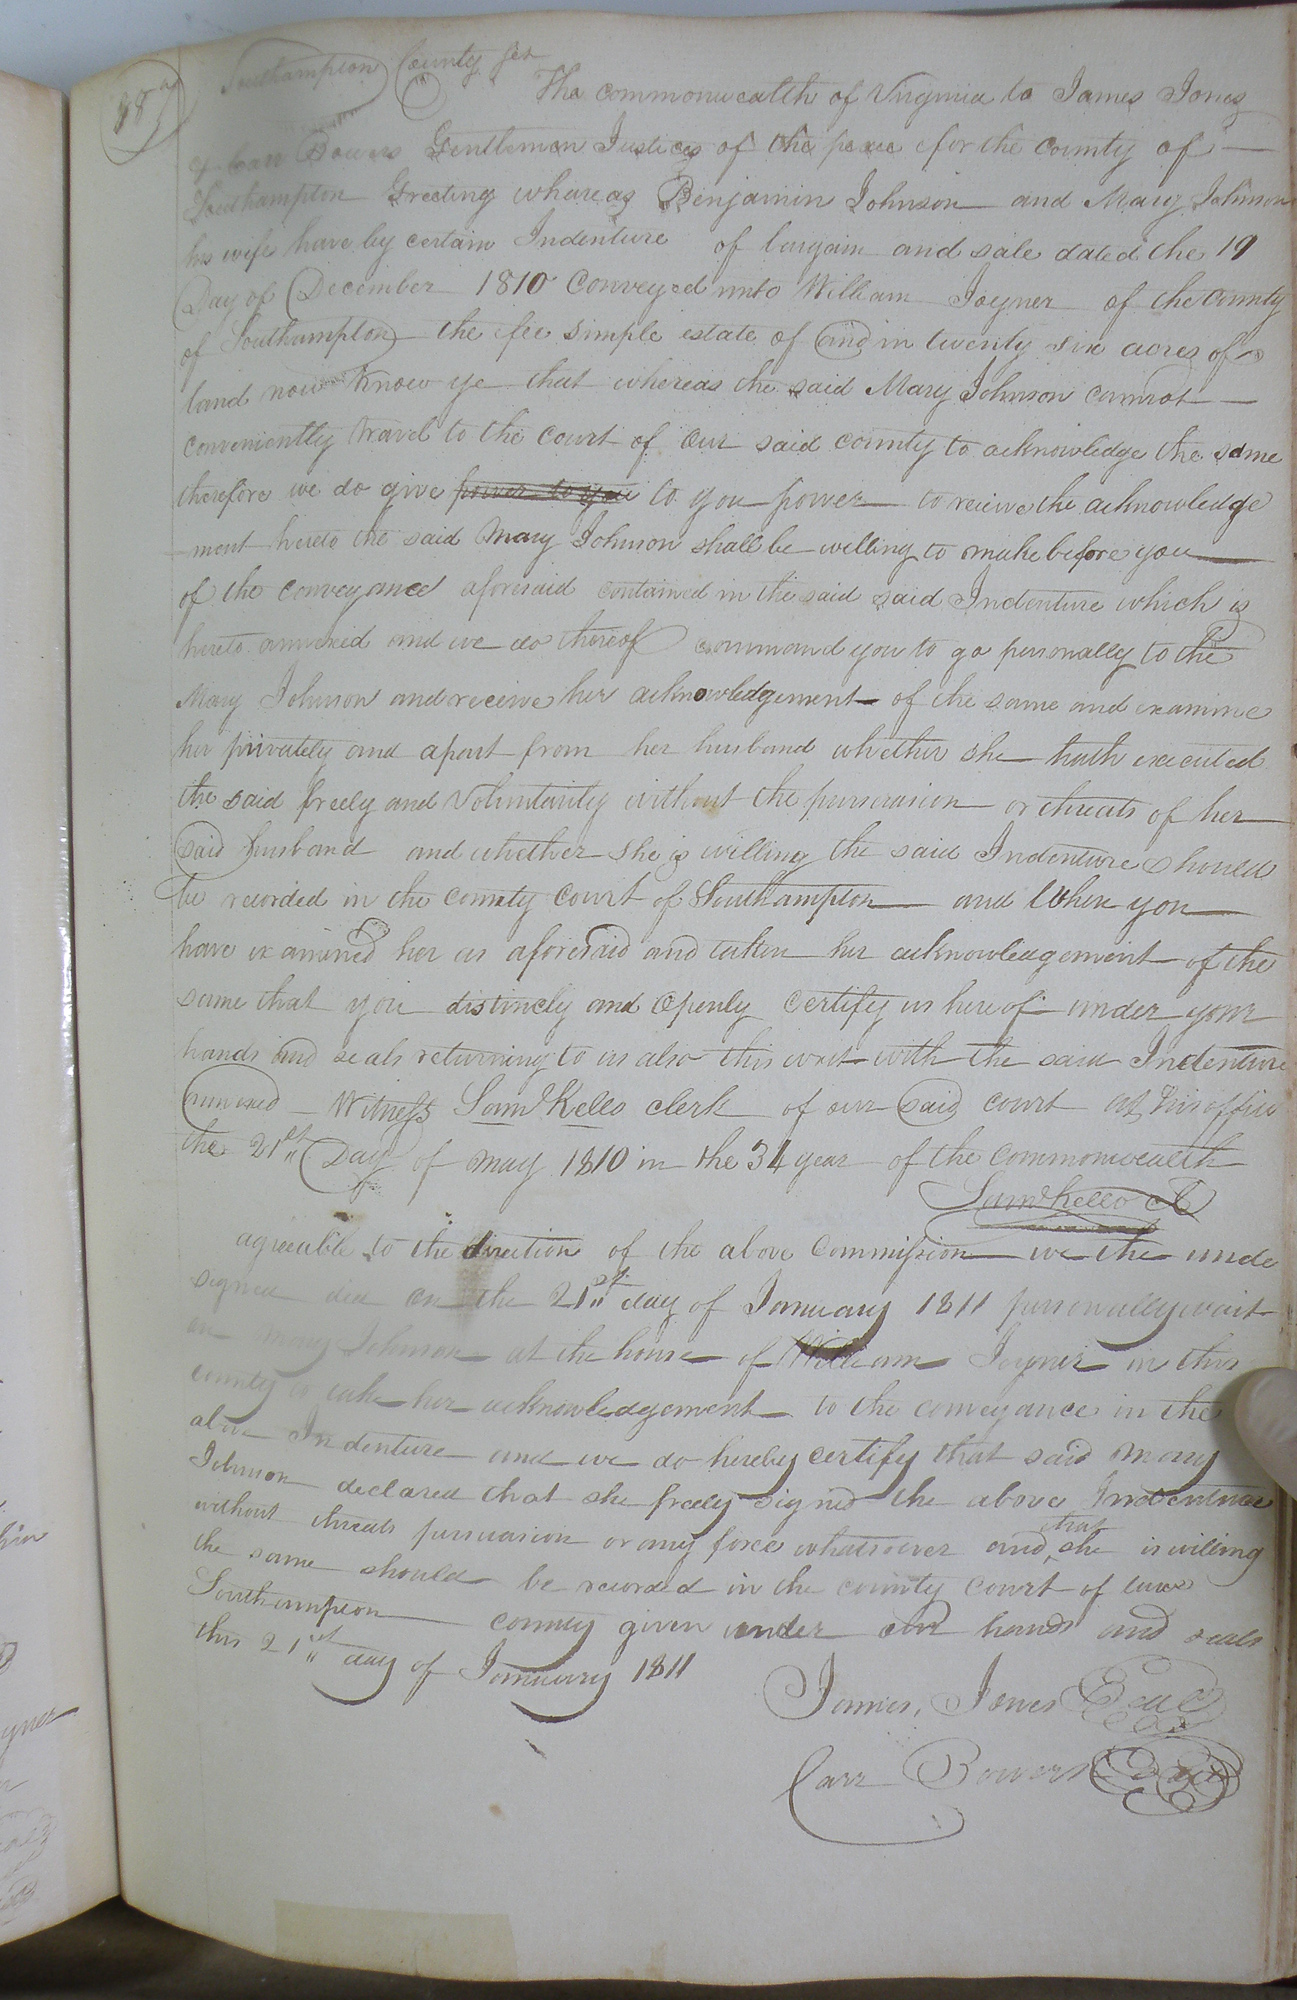 98
Southampton County Sct
The commonwealth of Virginia to James Jones
& Carr Bowers Gentlemen Justices of the peace for the county of
Southampton Greeting whereas Benjamin Johnson and Mary Johnson
his wife have by certain Indenture of bargain and sale dated the 19
Day of December 1810 Conveyed unto William Joyner of the county
of Southampton the fee simple estate of and in twenty six acres of
land now know ye that whereas the said Mary Johnson cannot
conveniently travel to the court of our said county to acknowledge the same
therefore we do give power to you to you power to receive the acknowledge
ment hereto the said Mary Johnson shall be willing to make before you
of the conveyance aforesaid contained in the said said Indenture which is
hereto annexed and we do thereof command you to go personally to the
Mary Johnson and receive her acknowledgement of the same and examine
her privately and apart from her husband whether she hath executed
the said freely and Voluntarily without the perswasion or threats of her
said husband and whether she is willing the said Indenture should
be recorded in the county court of Southampton and When you
have examined her as aforesaid and taken her acknowledgement of the
same that you distincly and Openly Certify us hereof under your
hands and seals returning to us also this writ with the said Indenture
annexed Witness Saml Kello clerk of our said court at his office
the 21st Day of may 1810 in the 34 year of the commonwealth
Saml Kello Cl
agreeable to the direction of the above Commission we the unde
signed did on the 21st day of January 1811 personally wait
on Mary Johnson at the house of William Joyner in this
county to take her acknowledgement to the conveyance in the
above Indenture and we do hereby certify that said Mary
Johnson declared that she freely signed the above Indenture
without threats persuasion or any force whatsoever and that she is willing
the same should be recorded in the county court of law
Southampton county given under our hands and seals
this 21st day of January 1811
James, Jones Seal
Carr Bowers Seal